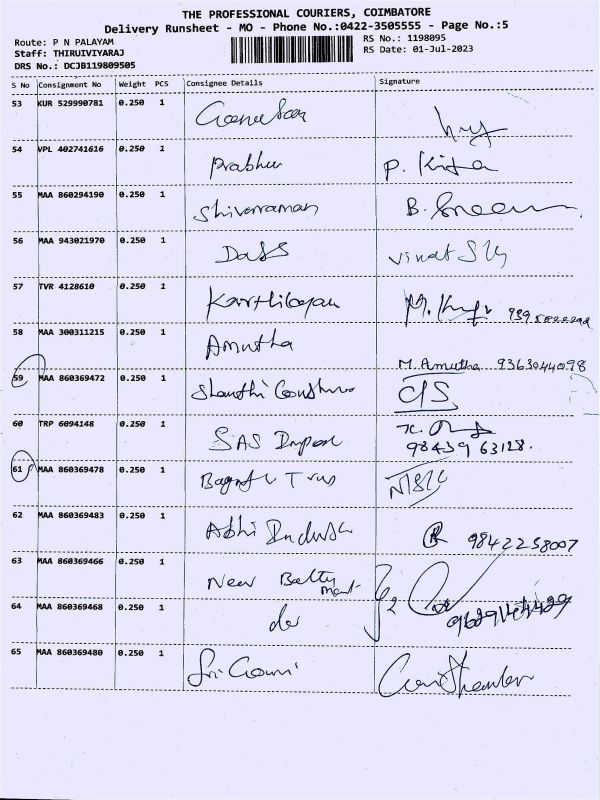 THE PROFESSIONAL COURIERS, COIMBATORE
Delivery Runsheet - MO - Phone No.:0422-3505555 - Page No.:5
Route: P N PALAYAM
RS No.: 1198095
Staff: THIRUIVIYARAJ
RS Date: 01-Jul-2023
DRS No.: DCJB119809505
S No Consignment No Weight PCS Consignee Details Signature
53 KUR 529990781 0.250 1
54 VPL 402741616 0.250 1 Prabhu P.
55 MAA 860294190 0.250 1 Shivarraman B.
56 MAA 943021970 0.250 1 Dass
57 TVR 4128610 0.250 1 Karthikeyan M.
58 MAA 300311215 0.250 1 Amutha M. Amutha 9363044098
59 MAA 860369472 0.250 1 Shanthi
60 TRP 6094148 0.250 1 SAS K.
98439 63128.
61 MAA 860369478 0.250 1
62 MAA 860369483 0.250 1 Abhi 9842258007
63 MAA 860369466 0.250 1 New
64 MAA 860369468 0.250 1 do
65 MAA 860369480 0.250 1 Sri Gowri